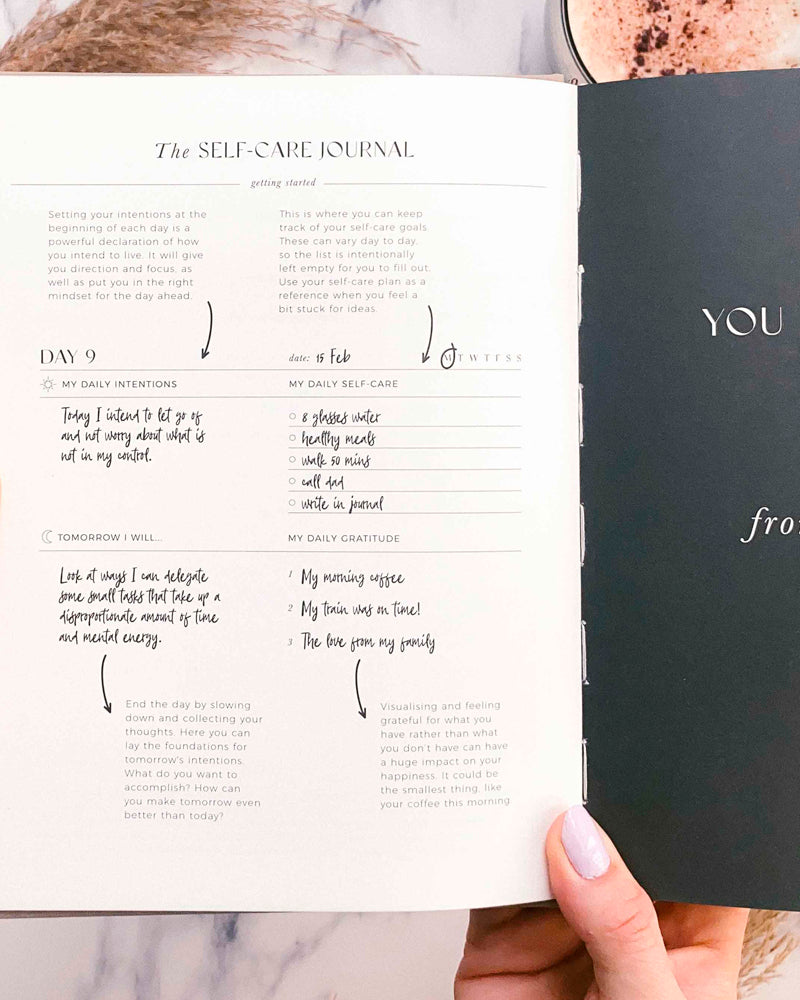 The SELF-CARE JOURNAL
getting started
Setting your intentions at the
beginning of each day is a
powerful declaration of how
you intend to live. It will give
you direction and focus, as
well as put you in the right
mindset for the day ahead.
This is where you can keep
track of your self-care goals.
These can vary day to day,
so the list is intentionally
left empty for you to fill out.
Use your self-care plan as a
reference when you feel a
bit stuck for ideas.
DAY 9
date: 15 Feb
M T W T F S S
MY DAILY INTENTIONS
Today I intend to let go of
and not worry about what is
not in my control.
MY DAILY SELF-CARE
8 glasses water
healthy meals
walk 50 mins
call dad
write in journal
TOMORROW I WILL...
Look at ways I can delegate
some small tasks that take up a
disproportionate amount of time
and mental energy.
MY DAILY GRATITUDE
1 My morning coffee
2 My train was on time!
3 The love from my family
End the day by slowing
down and collecting your
thoughts. Here you can
lay the foundations for
tomorrow's intentions.
What do you want to
accomplish? How can
you make tomorrow even
better than today?
Visualising and feeling
grateful for what you
have rather than what
you don't have can have
a huge impact on your
happiness. It could be
the smallest thing, like
your coffee this morning
YOU